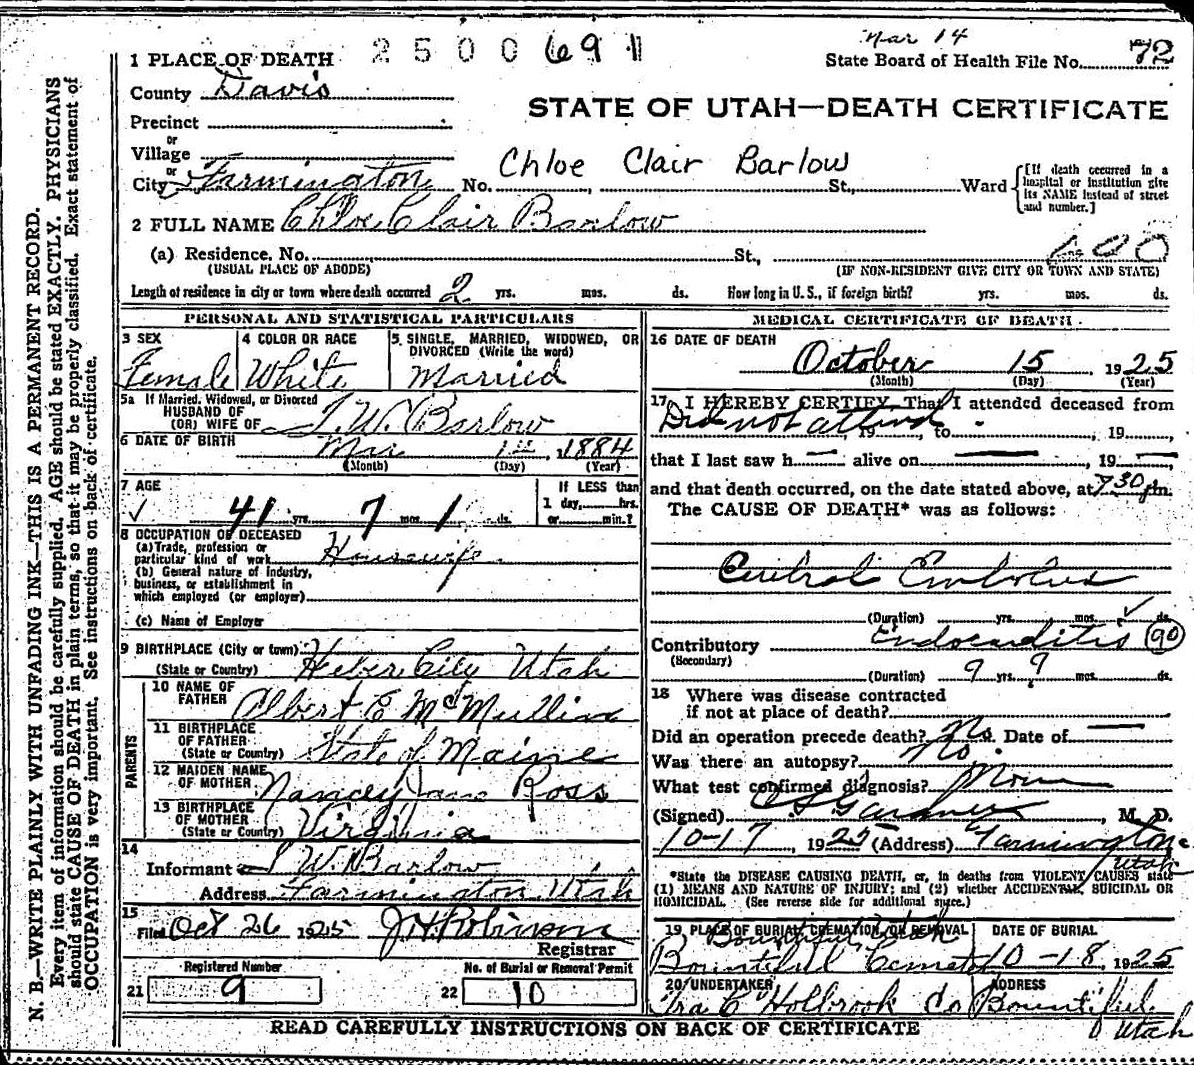 Mar 14
2500691
1 PLACE OF DEATH
State Board of Health File No. 72
County Davis
STATE OF UTAH—DEATH CERTIFICATE
Precinct
or
Village
or
City Farmington No. Chloe Clair Barlow St., Ward
[If death occurred in a hospital or institution give its NAME instead of street and number.]
2 FULL NAME Chloe Clair Barlow
(a) Residence. No. St., 600
(USUAL PLACE OF ABODE) (IF NON-RESIDENT GIVE CITY OR TOWN AND STATE)
Length of residence in city or town where death occurred 2 yrs. mos. ds. How long in U. S., if foreign birth? yrs. mos. ds.
PERSONAL AND STATISTICAL PARTICULARS
3 SEX Female
4 COLOR OR RACE White
5 SINGLE, MARRIED, WIDOWED, OR DIVORCED (Write the word) Married
5a If Married, Widowed, or Divorced
HUSBAND OF
(OR) WIFE OF J. W. Barlow
6 DATE OF BIRTH Mar 1st, 1884
(Month) (Day) (Year)
7 AGE
✓ 41 yrs. 7 mos. 1 ds.
If LESS than
1 day, hrs.
or min.?
8 OCCUPATION OF DECEASED
(a) Trade, profession or
particular kind of work Housewife
(b) General nature of industry,
business, or establishment in
which employed (or employer)
(c) Name of Employer
9 BIRTHPLACE (City or town)
(State or Country) Heber City Utah
PARENTS
10 NAME OF
FATHER Albert E McMullin
11 BIRTHPLACE
OF FATHER
(State or Country) State of Maine
12 MAIDEN NAME
OF MOTHER Nancy Jane Ross
13 BIRTHPLACE
OF MOTHER
(State or Country) Virginia
14
Informant J W. Barlow
Address Farmington, Utah
15
Filed Oct 26 1925 J H Robinson
Registrar
Registered Number
21 9
No. of Burial or Removal Permit
22 10
MEDICAL CERTIFICATE OF DEATH
16 DATE OF DEATH
October 15, 1925
(Month) (Day) (Year)
17 I HEREBY CERTIFY, That I attended deceased from
Did not attend, 19 , to , 19 ,
that I last saw h— alive on — , 19 —,
and that death occurred, on the date stated above, at 7 30 pm.
The CAUSE OF DEATH* was as follows:
Cerebral Embolus
(Duration) yrs. mos. ✓ ds.
Contributory Endocarditis (90)
(Secondary)
(Duration) 9 yrs. 9 mos. ds.
18 Where was disease contracted
if not at place of death?
Did an operation precede death? No. Date of —
Was there an autopsy? No.
What test confirmed diagnosis? None
(Signed) Gardner, M. D.
10-17, 1925 (Address) Farmington
Utah
*State the DISEASE CAUSING DEATH, or, in deaths from VIOLENT CAUSES state
(1) MEANS AND NATURE OF INJURY; and (2) whether ACCIDENTAL, SUICIDAL OR
HOMICIDAL. (See reverse side for additional space.)
19 PLACE OF BURIAL, CREMATION, OR REMOVAL
Bountiful, Utah
Bountiful Cemet
DATE OF BURIAL
10-18, 1925
20 UNDERTAKER
Ira C Holbrook Co
ADDRESS
Bountiful,
Utah
READ CAREFULLY INSTRUCTIONS ON BACK OF CERTIFICATE
N. B.—WRITE PLAINLY WITH UNFADING INK—THIS IS A PERMANENT RECORD.
Every item of information should be carefully supplied. AGE should be stated EXACTLY. PHYSICIANS
should state CAUSE OF DEATH in plain terms, so that it may be properly classified. Exact statement of
OCCUPATION is very important. See instructions on back of certificate.